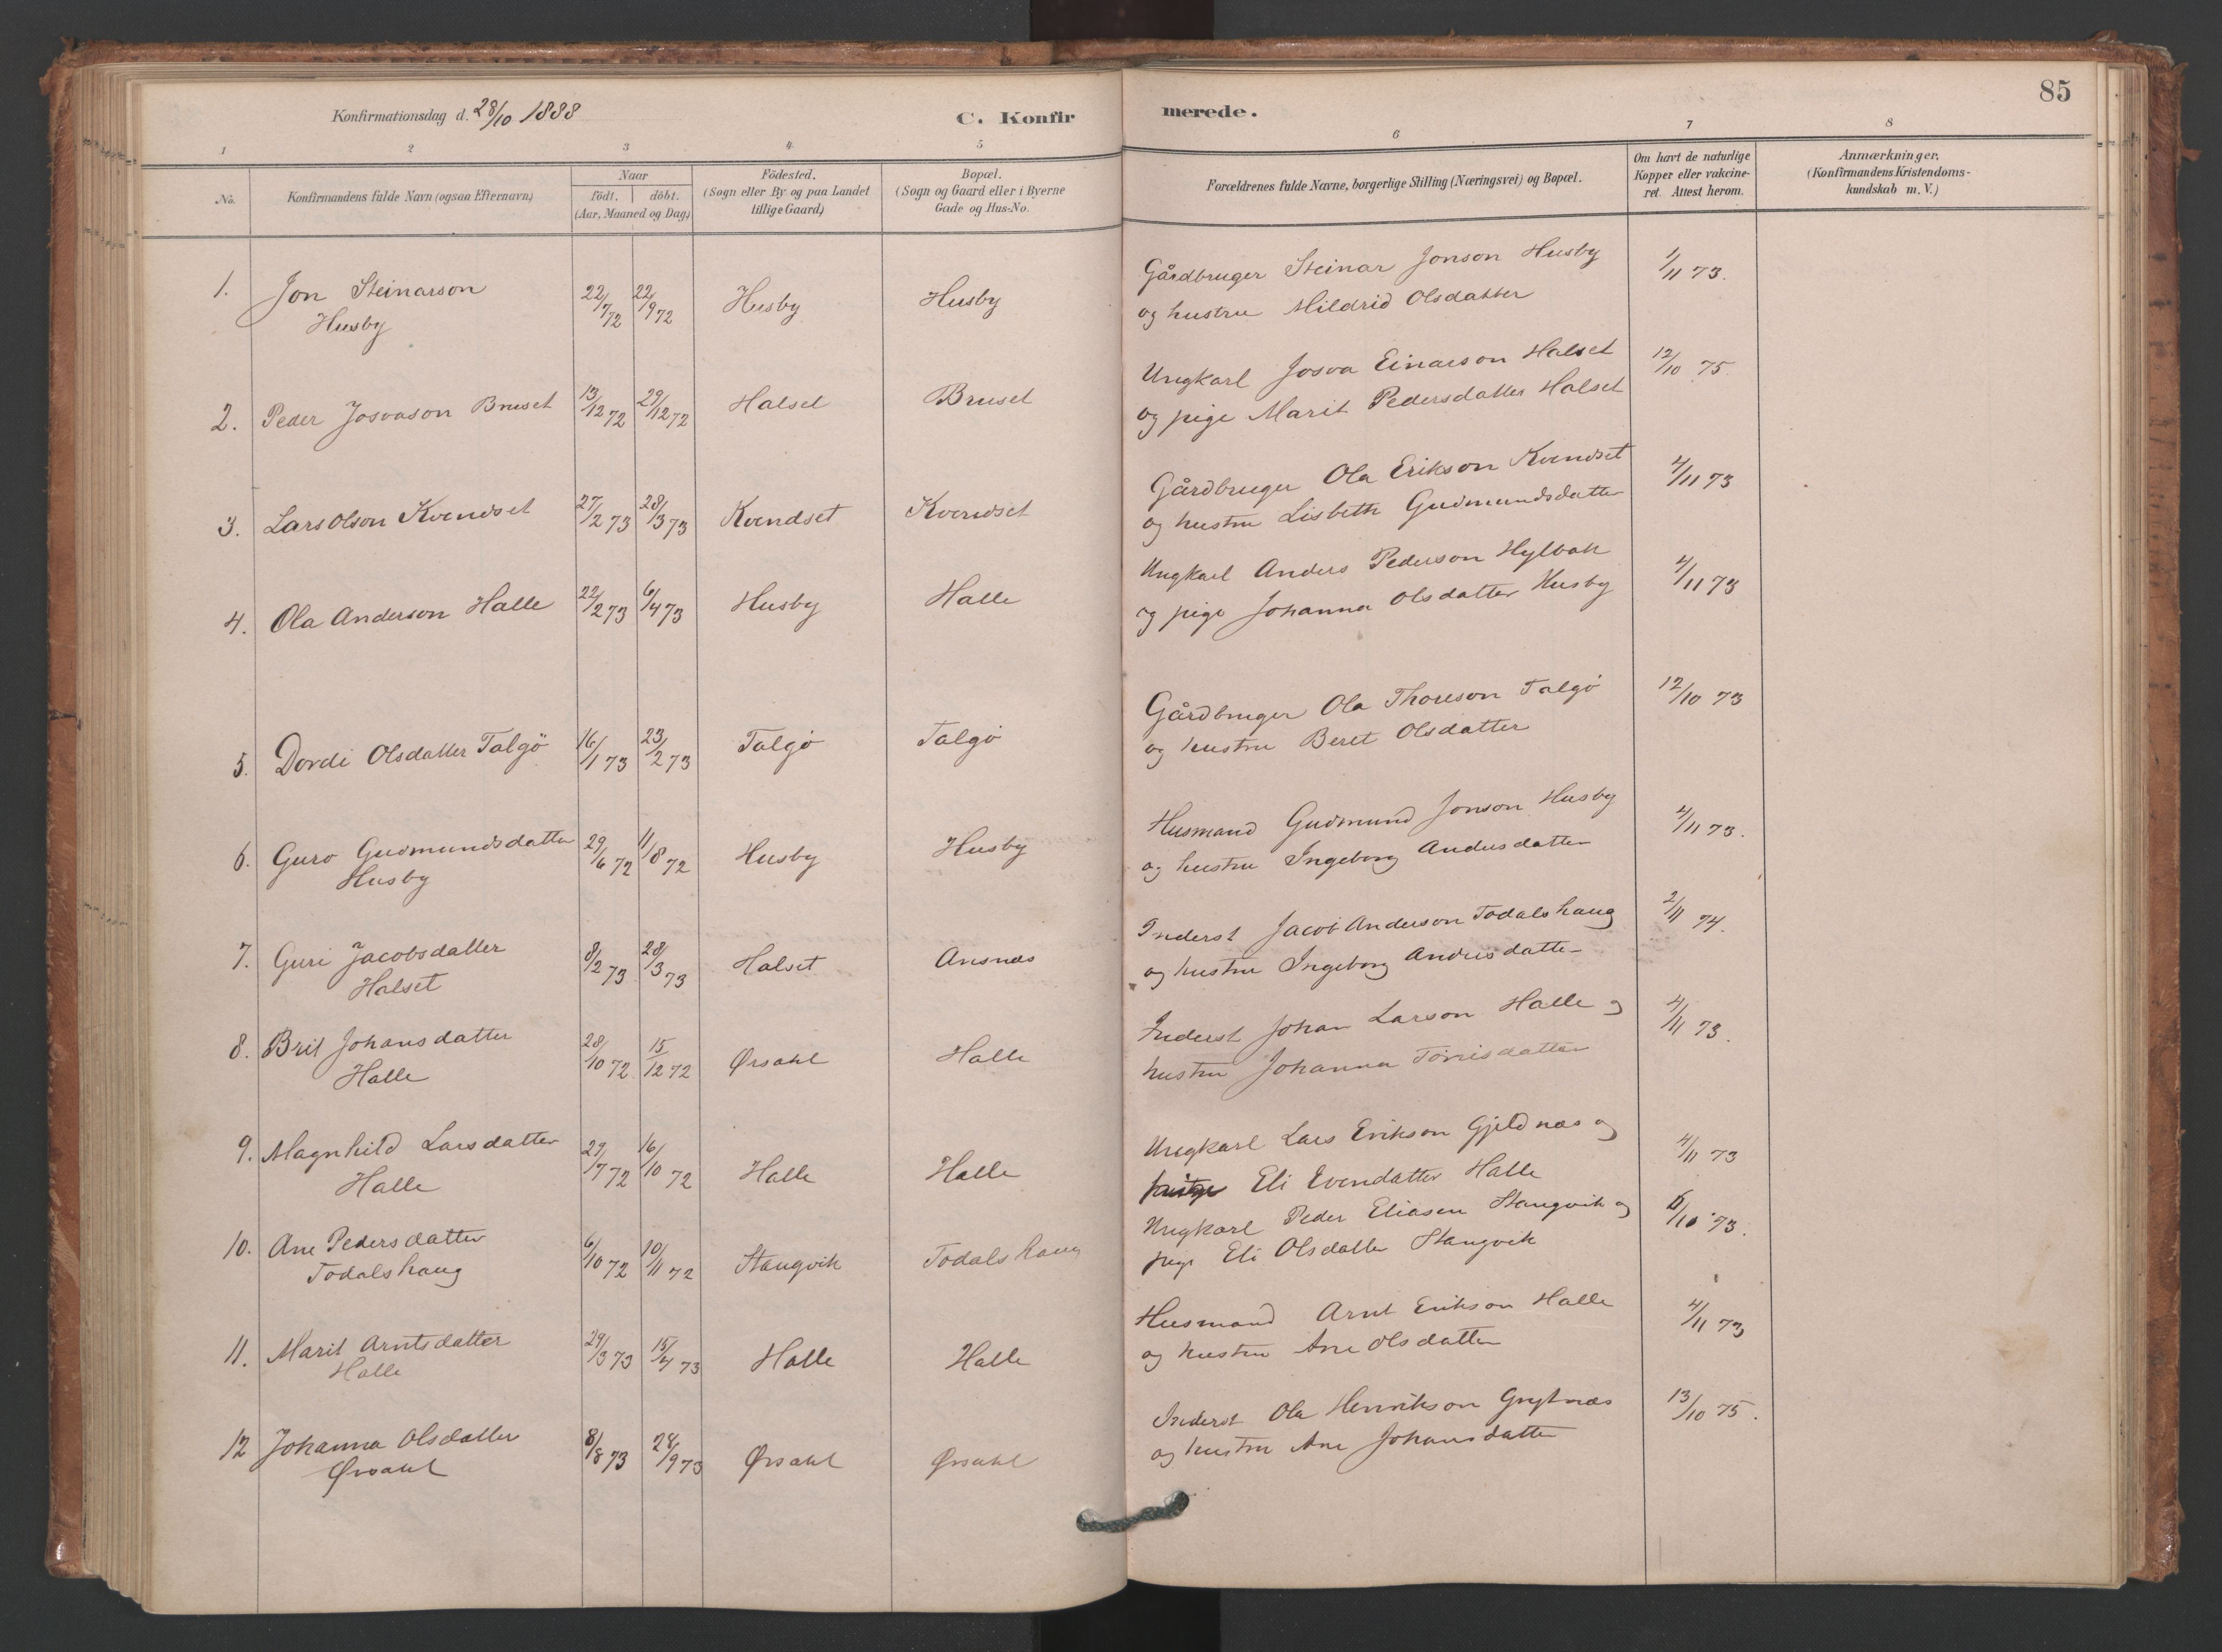 85
Konfirmationsdag d. 28/10 1888
C. Konfirmerede.
1 2 3 4 5 6 7 8
No.
Konfirmandens fulde Navn (ogsaa Efternavn)
Naar
födt. döbt.
(Aar, Maaned og Dag)
Födested.
(Sogn eller By og paa Landet
tillige Gaard)
Bopæl.
(Sogn og Gaard eller i Byerne
Gade og Hus-No.
Forældrenes fulde Navne, borgerlige Stilling (Næringsvei) og Bopæl.
Om havt de naturlige
Kopper eller vakcine-
ret. Attest herom.
Anmærkninger.
(Konfirmandens Kristendoms-
kundskab m. V.)
1. Jon Steinarson 22/7 72 22/9 72 Husby Husby
Husby
Gårdbruger Steinar Jonson Husby 1/11 73.
og hustru Mildrid Olsdatter
2. Peder Josvason Bruset 13/12 72 29/12 72 Halset Bruset
Ungkarl Josva Einarson Halset 12/10 75
og pige Marit Pedersdatter Halset
3. Lars Olson Kvendset 27/2 73 28/3 73 Kvendset Kvendset
Gårdbruger Ola Erikson Kvendset 4/11 73
og hustru Lisbeth Gudmundsdatter
4. Ola Anderson Halle 22/2 73 6/4 73 Husby Halle
Ungkarl Anders Pederson Hylbak 4/11 73
og pige Johanna Olsdatter Husby
5. Dordi Olsdatter Talgö 16/1 73 23/2 73 Talgö Talgö
Gårdbruger Ola Thoreson Talgö 12/10 73
og hustru Beret Olsdatter
6. Guro Gudmundsdatter 29/6 72 11/8 72 Husby Husby
Husby
Husmand Gudmund Jonson Husby 4/11 73.
og hustru Ingeborg Andersdatter
7. Guri Jacobsdatter 8/2 73 28/3 73 Halset Aasnæs
Halset
Inderst Jacob Anderson Todalshaug 2/11 74.
og hustru Ingeborg Andersdatter
8. Brit Johansdatter 28/10 72 15/12 72 Ørsahl Halle
Halle
Inderst Johan Larson Halle og 4/11 73.
hustru Johanna Törrisdatter
9. Magnhild Larsdatter 29/7 72 16/10 72 Halle Halle
Halle
Ungkarl Lars Erikson Gjeldnæs og 4/11 73
pige Eli Evendatter Halle
10. Ane Pedersdatter 6/10 72 10/11 72 Stangvik Todalshaug
Todalshaug
Ungkarl Peder Eliasen Stangvik og /10 73.
pige Eli Olsdatter Stangvik
11. Marit Arntsdatter 29/3 73 15/4 73 Halle Halle
Halle
Husmand Arnt Erikson Halle 4/11 73
og hustru Ane Olsdatter
12 Johanna Olsdatter 8/8 73 28/9 73 Ørsahl Ørsahl
Ørsahl
Inderst Ola Henrikson Grytnæs 13/10 75.
og hustru Ane Johansdatter